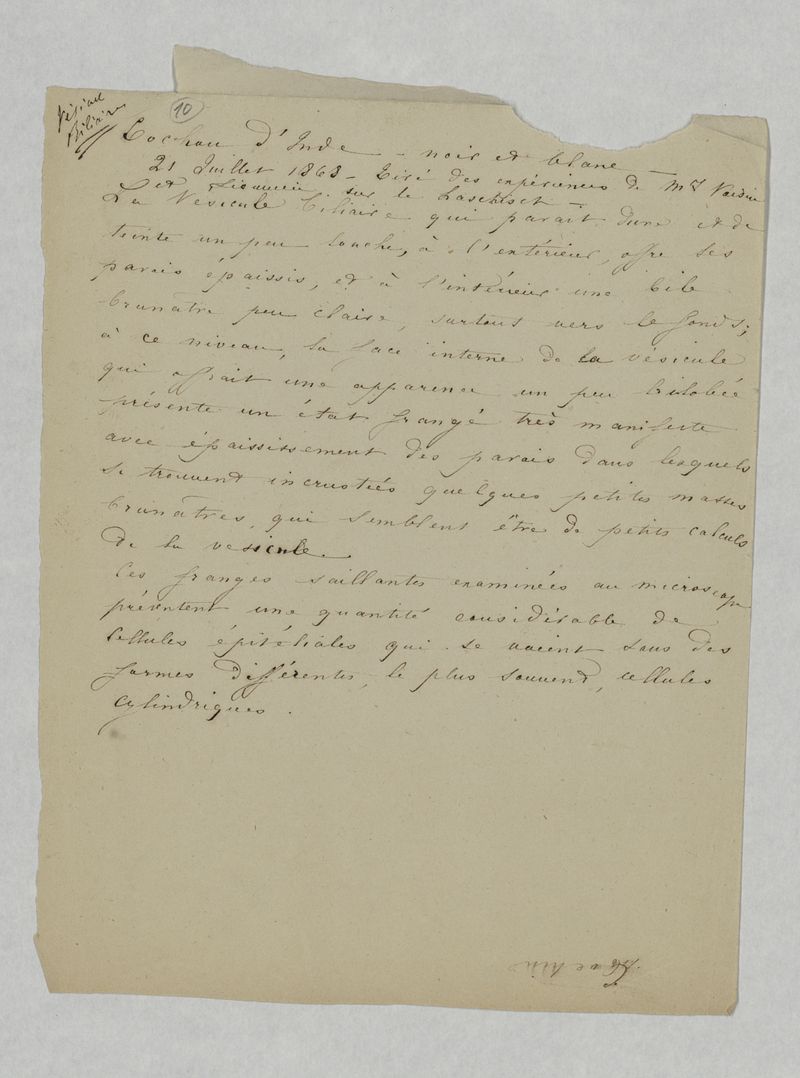 Vésicule
biliaire
10
Cochon d'Inde - noir et blanc -
21 Juillet 1868 - Tiré des expériences de Mrs Voisin
et Liouville sur le
La Vésicule biliaire qui parait dure et de
teinte un peu louche, à l'extérieur, offre ses
parois épaissis, et à l'intérieur une bile
brunâtre peu claire, surtout vers le fonds;
à ce niveau, la face interne de la vésicule
qui offrait une apparence un peu trilobée
présente un état frangé très manifeste
avec épaississement des parois dans lesquels
se trouvent incrustées quelques petites masses
brunâtres, qui semblent être de petits calculs
de la vesicule.
Ces franges saillantes examinées au microscope
présentent une quantité considérable de
cellules épitéliales qui se voient sous des
formes différentes, le plus souvent, cellules
cylindriques.